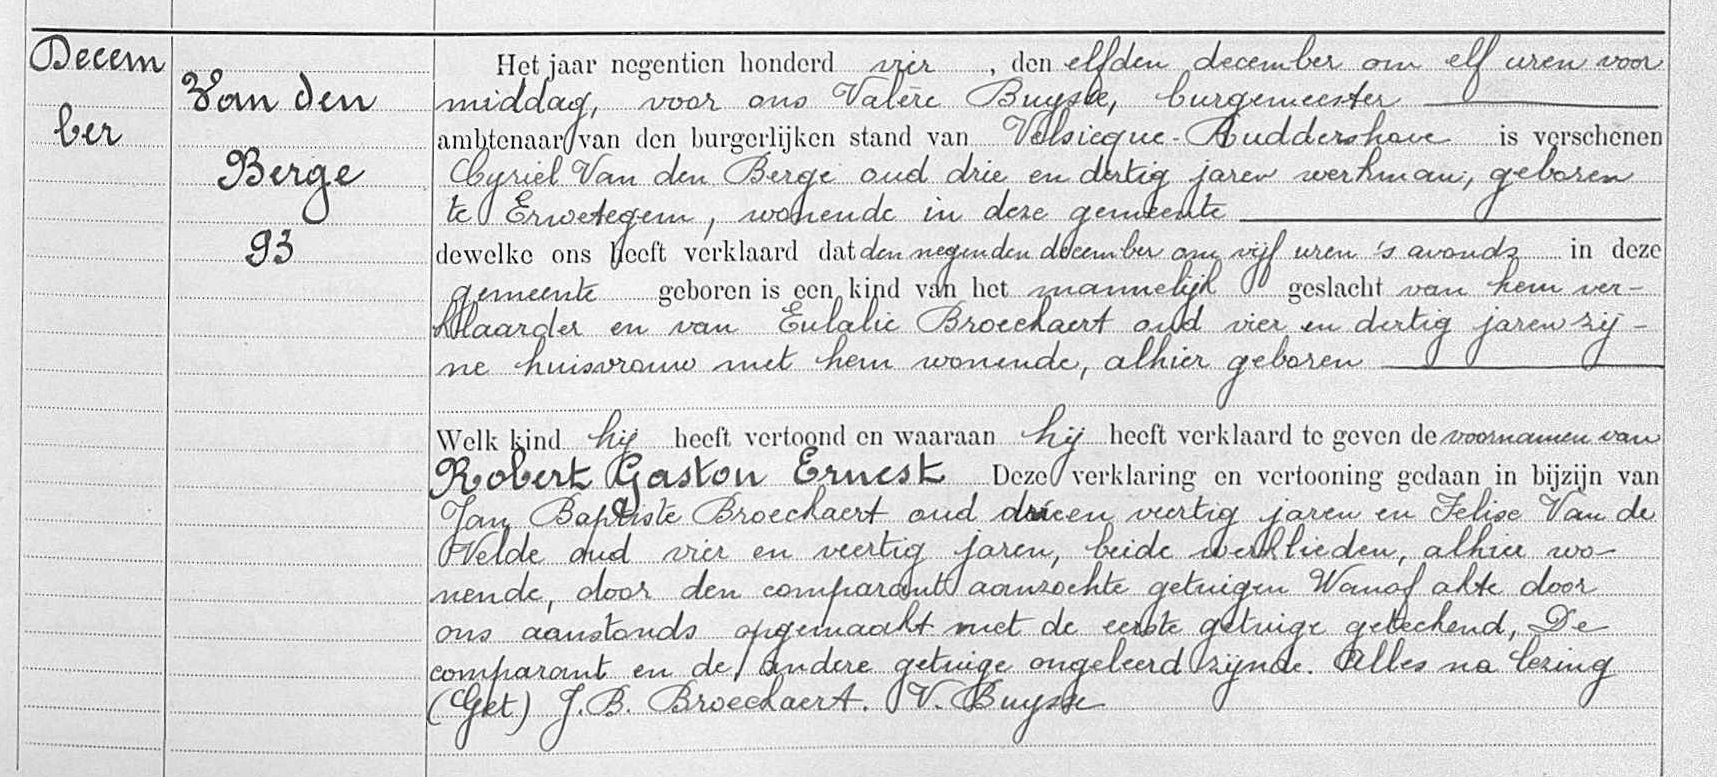 Decem
ber
Van den
Berge
93
Het jaar negentien honderd vier, den elfden december om elf uren voor
middag, voor ons Valère Buysse, burgemeester
ambtenaar van den burgerlijken stand van Velsicque-Ruddershove is verschenen
Cyriel Van den Berge oud drie en dertig jaren werkman, geboren
te Erwetegem, wonende in deze gemeente
dewelke ons heeft verklaard dat den negenden december om vijf uren 's avonds in deze
gemeente geboren is een kind van het mannelijk geslacht van hem ver-
klaarder en van Eulalie Broeckaert oud vier en dertig jaren zij-
ne huisvrouw met hem wonende, alhier geboren
Welk kind hij heeft vertoond en waaraan hij heeft verklaard te geven de voornamen van
Robert Gaston Ernest Deze verklaring en vertooning gedaan in bijzijn van
Jan Baptiste Broeckaert oud drieen veertig jaren en Felise Van de
Velde oud vier en veertig jaren, beide werklieden, alhier wo-
nende, door den comparant aanzochte getuigen Wanof akte door
ons aanstonds opgemaakt met de eerste getuige geteekend, De
comparant en de andere getuige ongeleerd zijnde. Alles na lezing
(Get) J.B. Broeckaert. V. Buysse